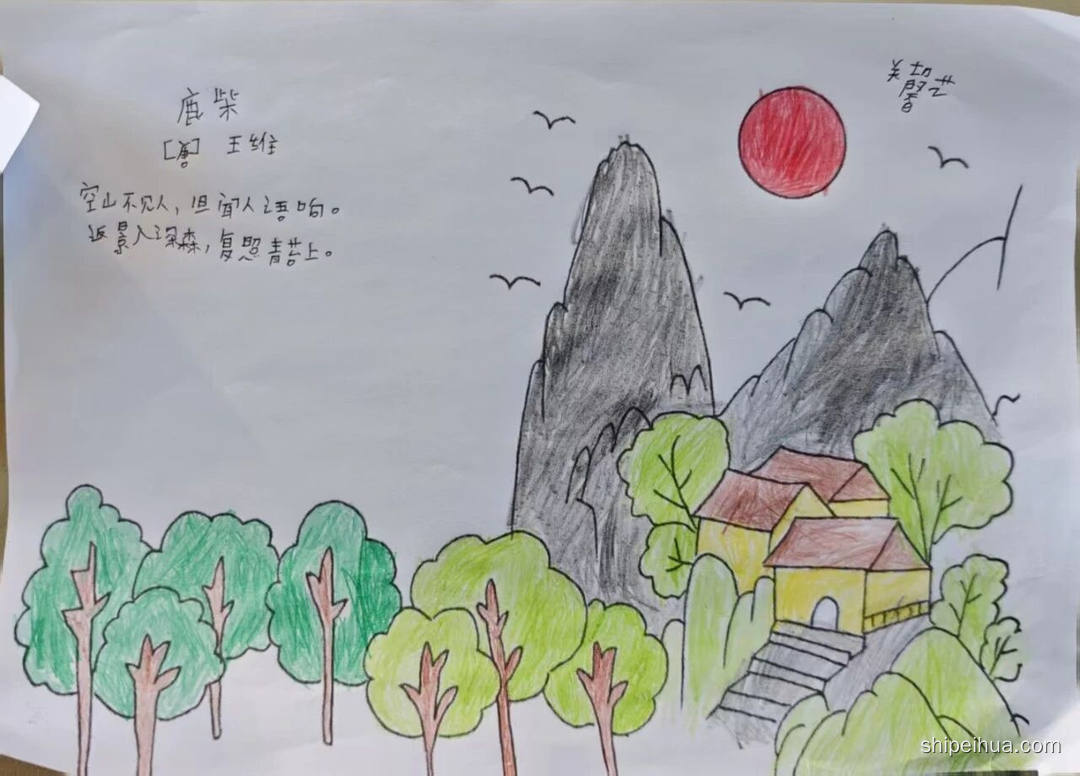 鹿柴
[唐] 王维
空山不见人，但闻人语响。
返景入深森，复照青苔上。
关切
馨艺
shipeihua.com